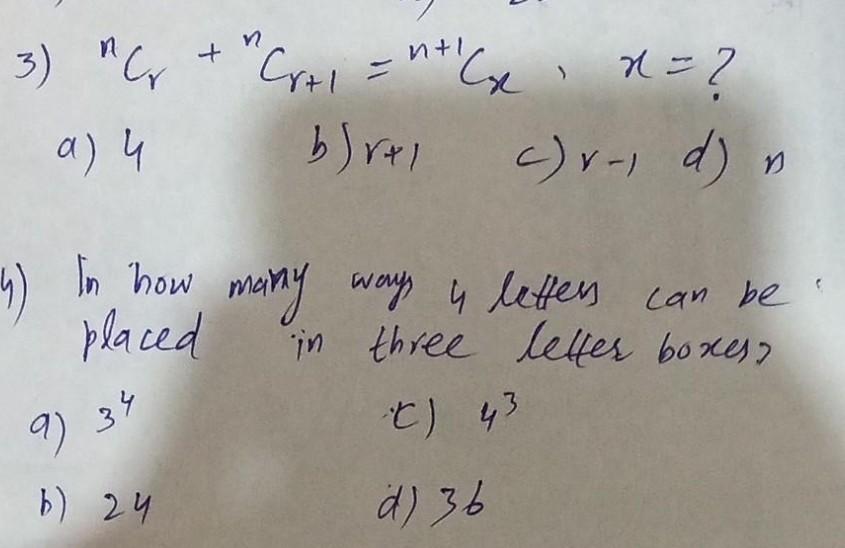 3) ⁿCᵣ + ⁿCᵣ₊₁ = ⁿ⁺¹Cₓ, x = ?
a) 4 b) r+1 c) r-1 d) n
4) In how many ways 4 letters can be
placed in three letter boxes?
a) 3⁴ c) 4³
b) 24 d) 36